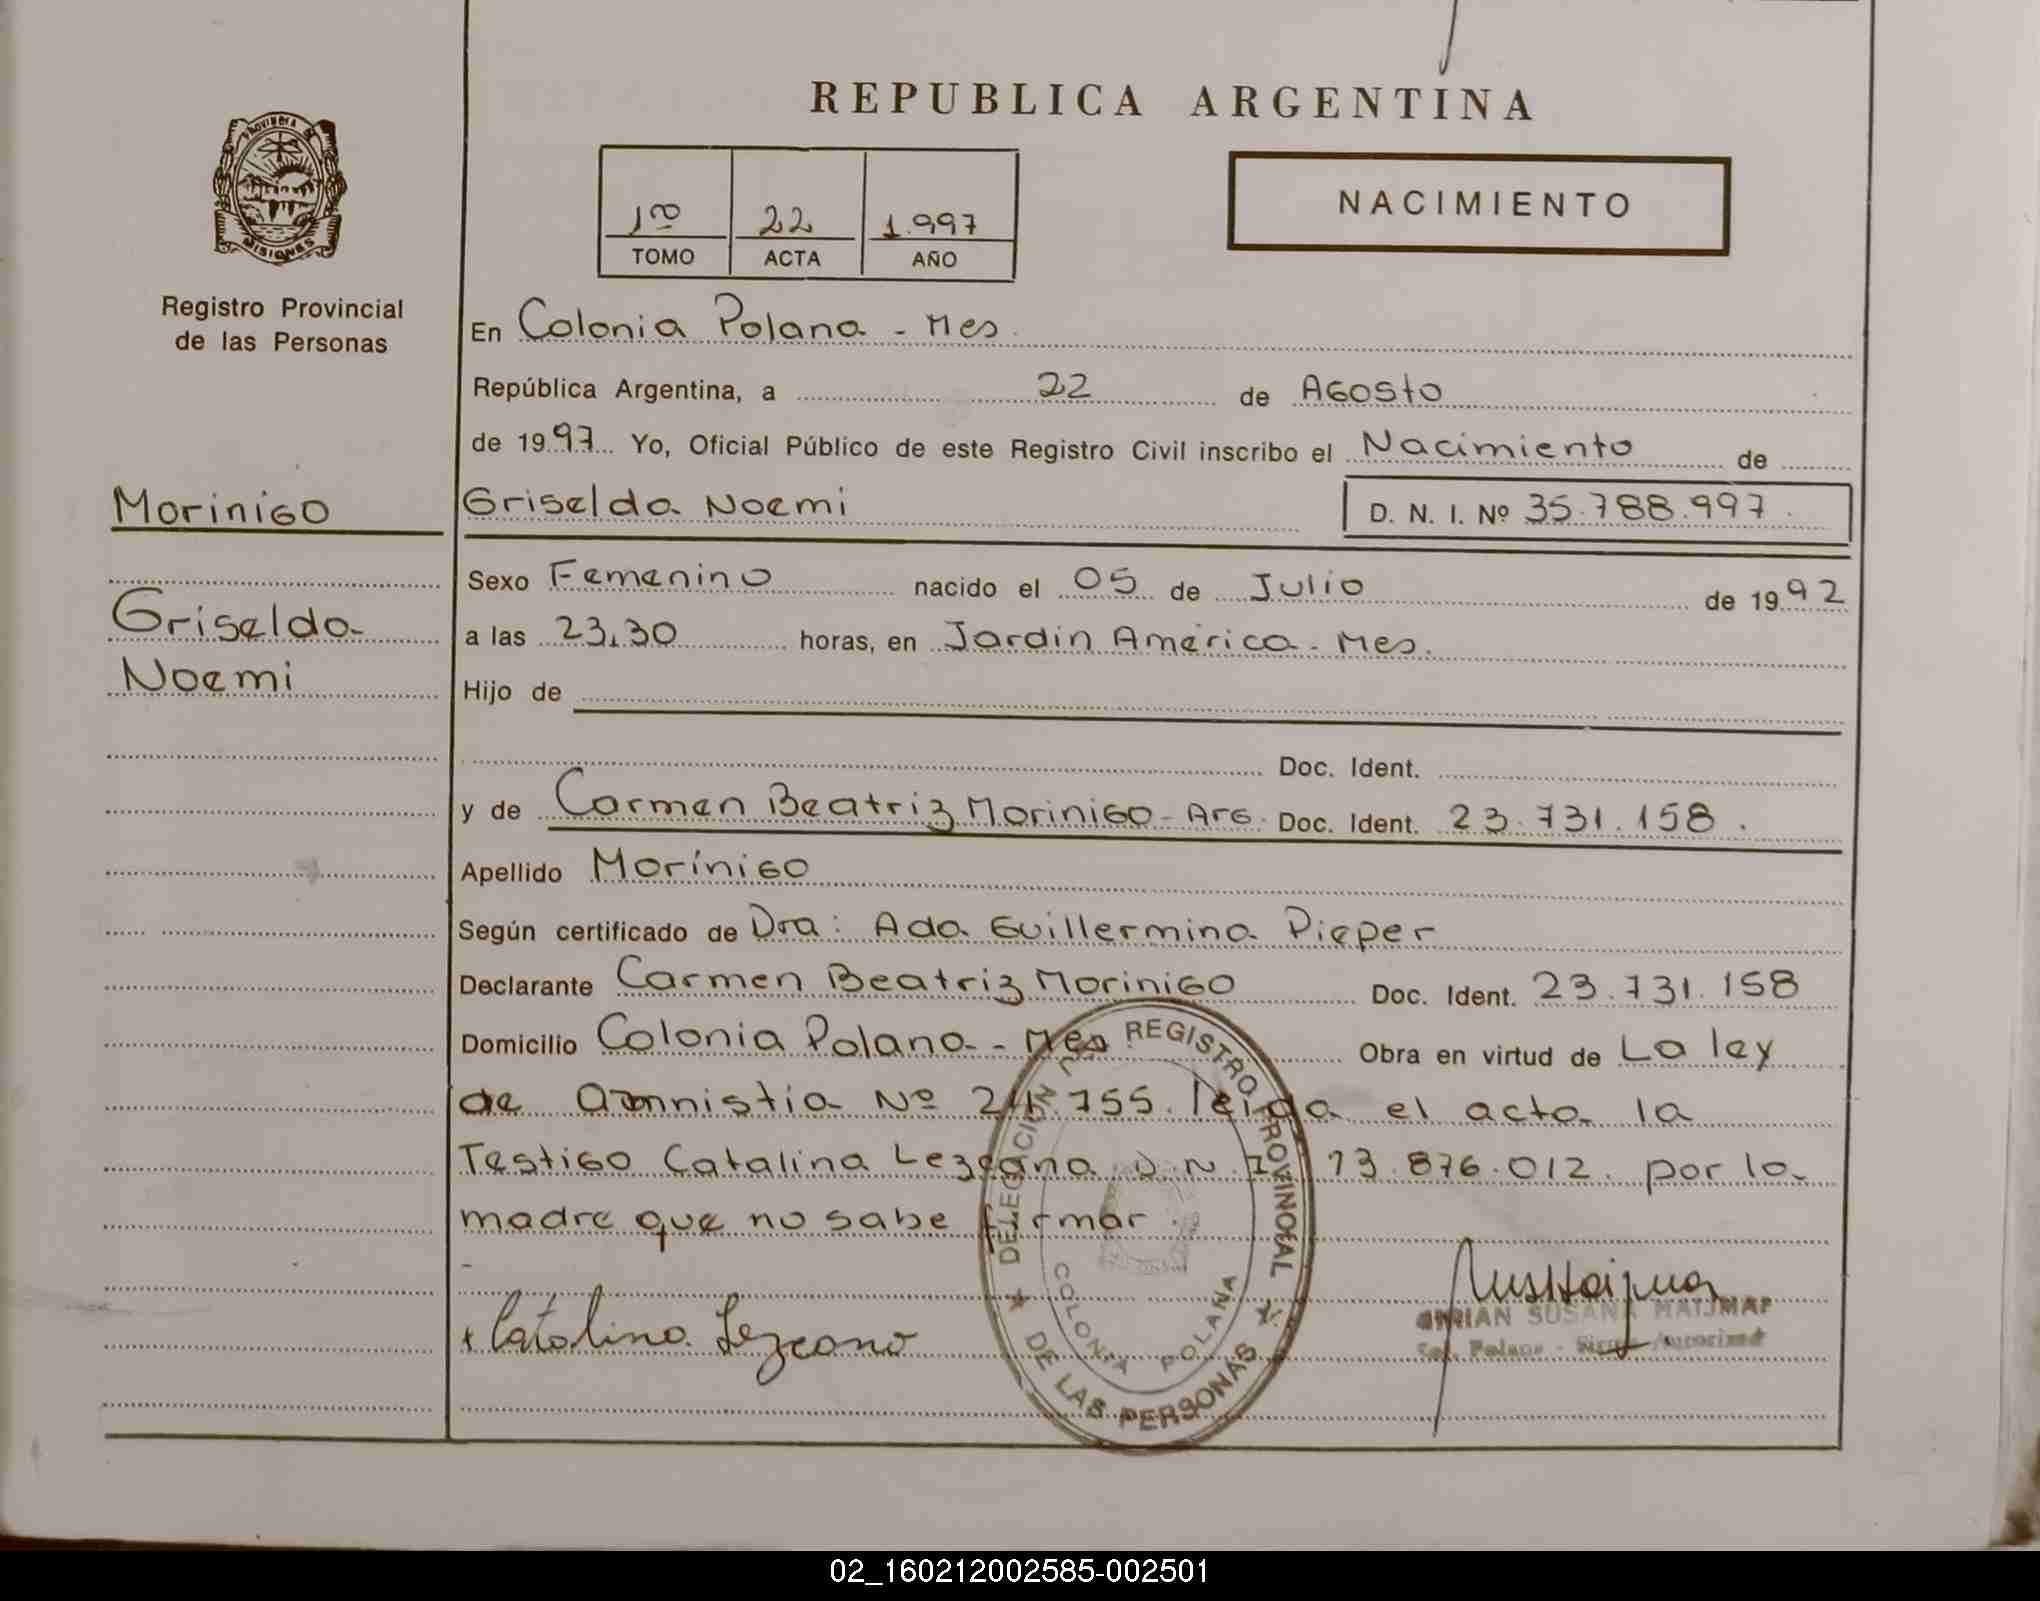 REPUBLICA ARGENTINA
PROVINCIA DE
MISIONES
Registro Provincial
de las Personas
1ro 22 1.997
TOMO ACTA AÑO
NACIMIENTO
En Colonia Polana - Mes.
República Argentina, a 22 de Agosto
de 1997 Yo, Oficial Público de este Registro Civil inscribo el Nacimiento de
Morinigo
Griselda Noemi D. N. I. Nº 35.788.997.
Sexo Femenino nacido el 05 de Julio de 1992
Griselda
a las 23,30 horas, en Jardín América - Mes.
Noemi
Hijo de
Doc. Ident.
y de Carmen Beatriz Morinigo - Arg. Doc. Ident. 23.731.158.
Apellido Morínigo
Según certificado de Dra: Ada Guillermina Pieper
Declarante Carmen Beatriz Morinigo Doc. Ident. 23.731.158
Domicilio Colonia Polana - Mes Obra en virtud de La ley
de amnistia Nº 24.755. leida el acto la
Testigo Catalina Lezcano D.N.I 13.876.012. por la
madre que no sabe firmar.
Catalina Lezcano
DELEGACION REGISTRO PROVINCIAL
DE LAS PERSONAS
COLONIA POLANA
SUSANA
Col. Polana - Autorizada
02_160212002585-002501